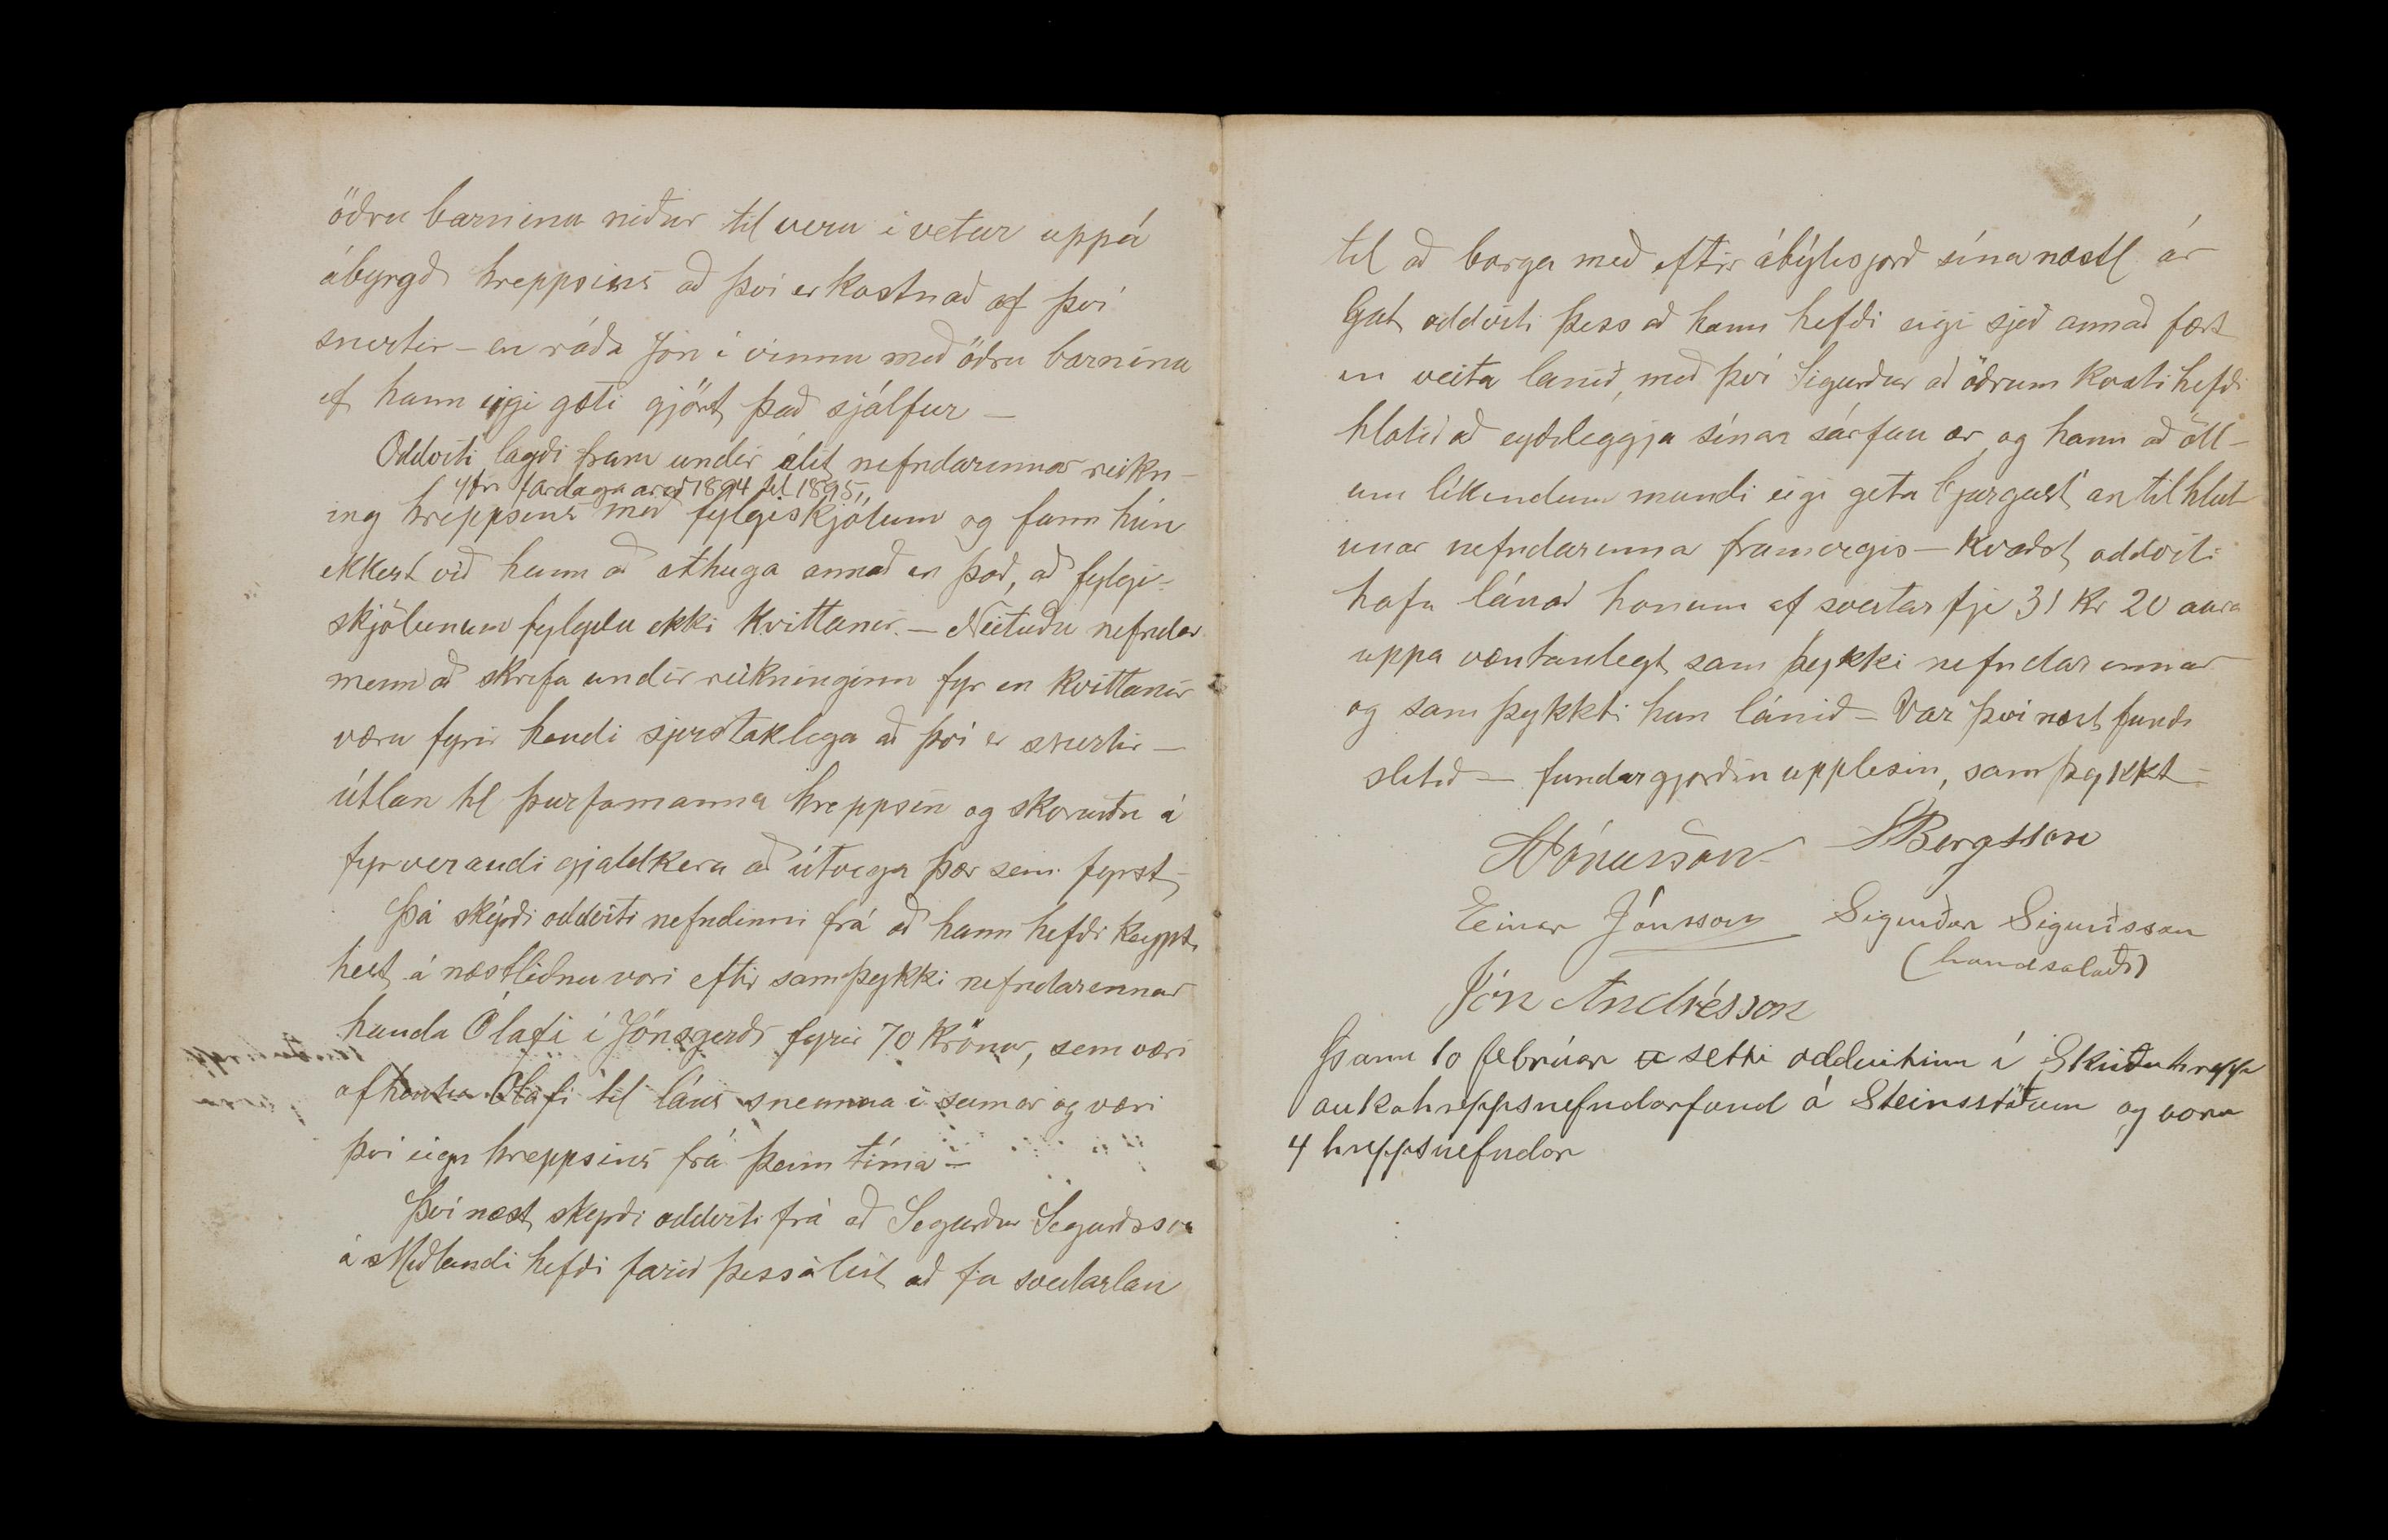 öðru barninu niður til veru í vetur uppá
ábyrgð hreppsins að því er kostnað af því
snertir – en ráða Jón í vinnu með öðru barninu
ef hann eigi gæti gjört það sjálfur –
Oddviti lagði fram undir álit nefndarinnar reikn-
yfir fardaga arið 1894 til 1895,
ing hreppsins með fylgiskjölum og fann hún
ekkert við hann að athuga annað en það, að fylgi-
skjölunum fylgdu ekki kvittanir. – Neituðu nefndar
menn að skrifa undir reikninginn fyr en kvittanir
væru fyrir hendi sjerstaklega að því er snertir –
útlan til þurfamanna hreppsin og skoruðu á
fyrverandi gjaldkera að útvega þær sem fyrst –
Þá skýrði oddviti nefndinni frá að hann hefði keypt
hest á næstliðnu vori eftir samþykki nefndarennar
handa Ólafi í Jónsgerði fyrir 70 krónur, sem væri
afhentur Ólafi til láns snemma í sumar og væri
því eign hreppsins frá þeim tíma –
Því næst skyrði oddviti frá að Segurður Segurðsson
á Miðlandi hefði farið þess á leit að fa sveitarlan
til að borga með eftir ábýlisjorð sína næstl ár
Gat oddviti þess að hann hefði eigi sjeð annað fært
en veita lanið, með því Sigurður að öðrum kosti hefði
hlotið að eyðileggja sínar sárfáu ær, og hann að öll-
um líkendum mundi eigi geta bjargast án tilhlut
unar nefndarinnar framvegis – Kvaðst oddviti
hafa lánað honum af sveitar fje 31 kr 20 aura
uppa væntanlegt samþykki nefndarennar
og samþykkti hun lánið – Var því næst fundi
slitið – fundargjorðin upplesin, samþykkt –
Jónasson SBergsson
Einar Jónsson Sigurður Sigurðsson
(handsalaði)
Jón Andrésson
Þann 10 februar a setti oddvitinn í Skriðuhrepp
aukahreppsnefndarfund á Steinsstöðum og voru
4 hreppsnefndar